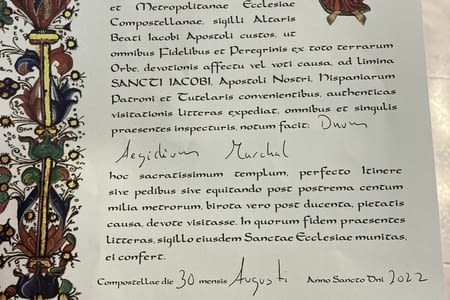 et Metropolitanae Ecclesiae
Compostellanae, sigilli Altaris
Beati Iacobi Apostoli custos, ut
omnibus Fidelibus et Peregrinis ex toto terrarum
Orbe, devotionis affectu vel voti causa, ad limina
SANCTI IACOBI, Apostoli Nostri, Hispaniarum
Patroni et Tutelaris convenientibus, authenticas
visitationis litteras expediat, omnibus et singulis
praesentes inspecturis, notum facit: Dnum
Aegidium Marchal
hoc sacratissimum templum, perfecto Itinere
sive pedibus sive equitando post postrema centum
milia metrorum, birota vero post ducenta, pietatis
causa, devote visitasse. In quorum fidem praesentes
litteras, sigillo eiusdem Sanctae Ecclesiae munitas,
ei confert.
Compostellae die 30 mensis Augusti Anno Sancto Dni 2022